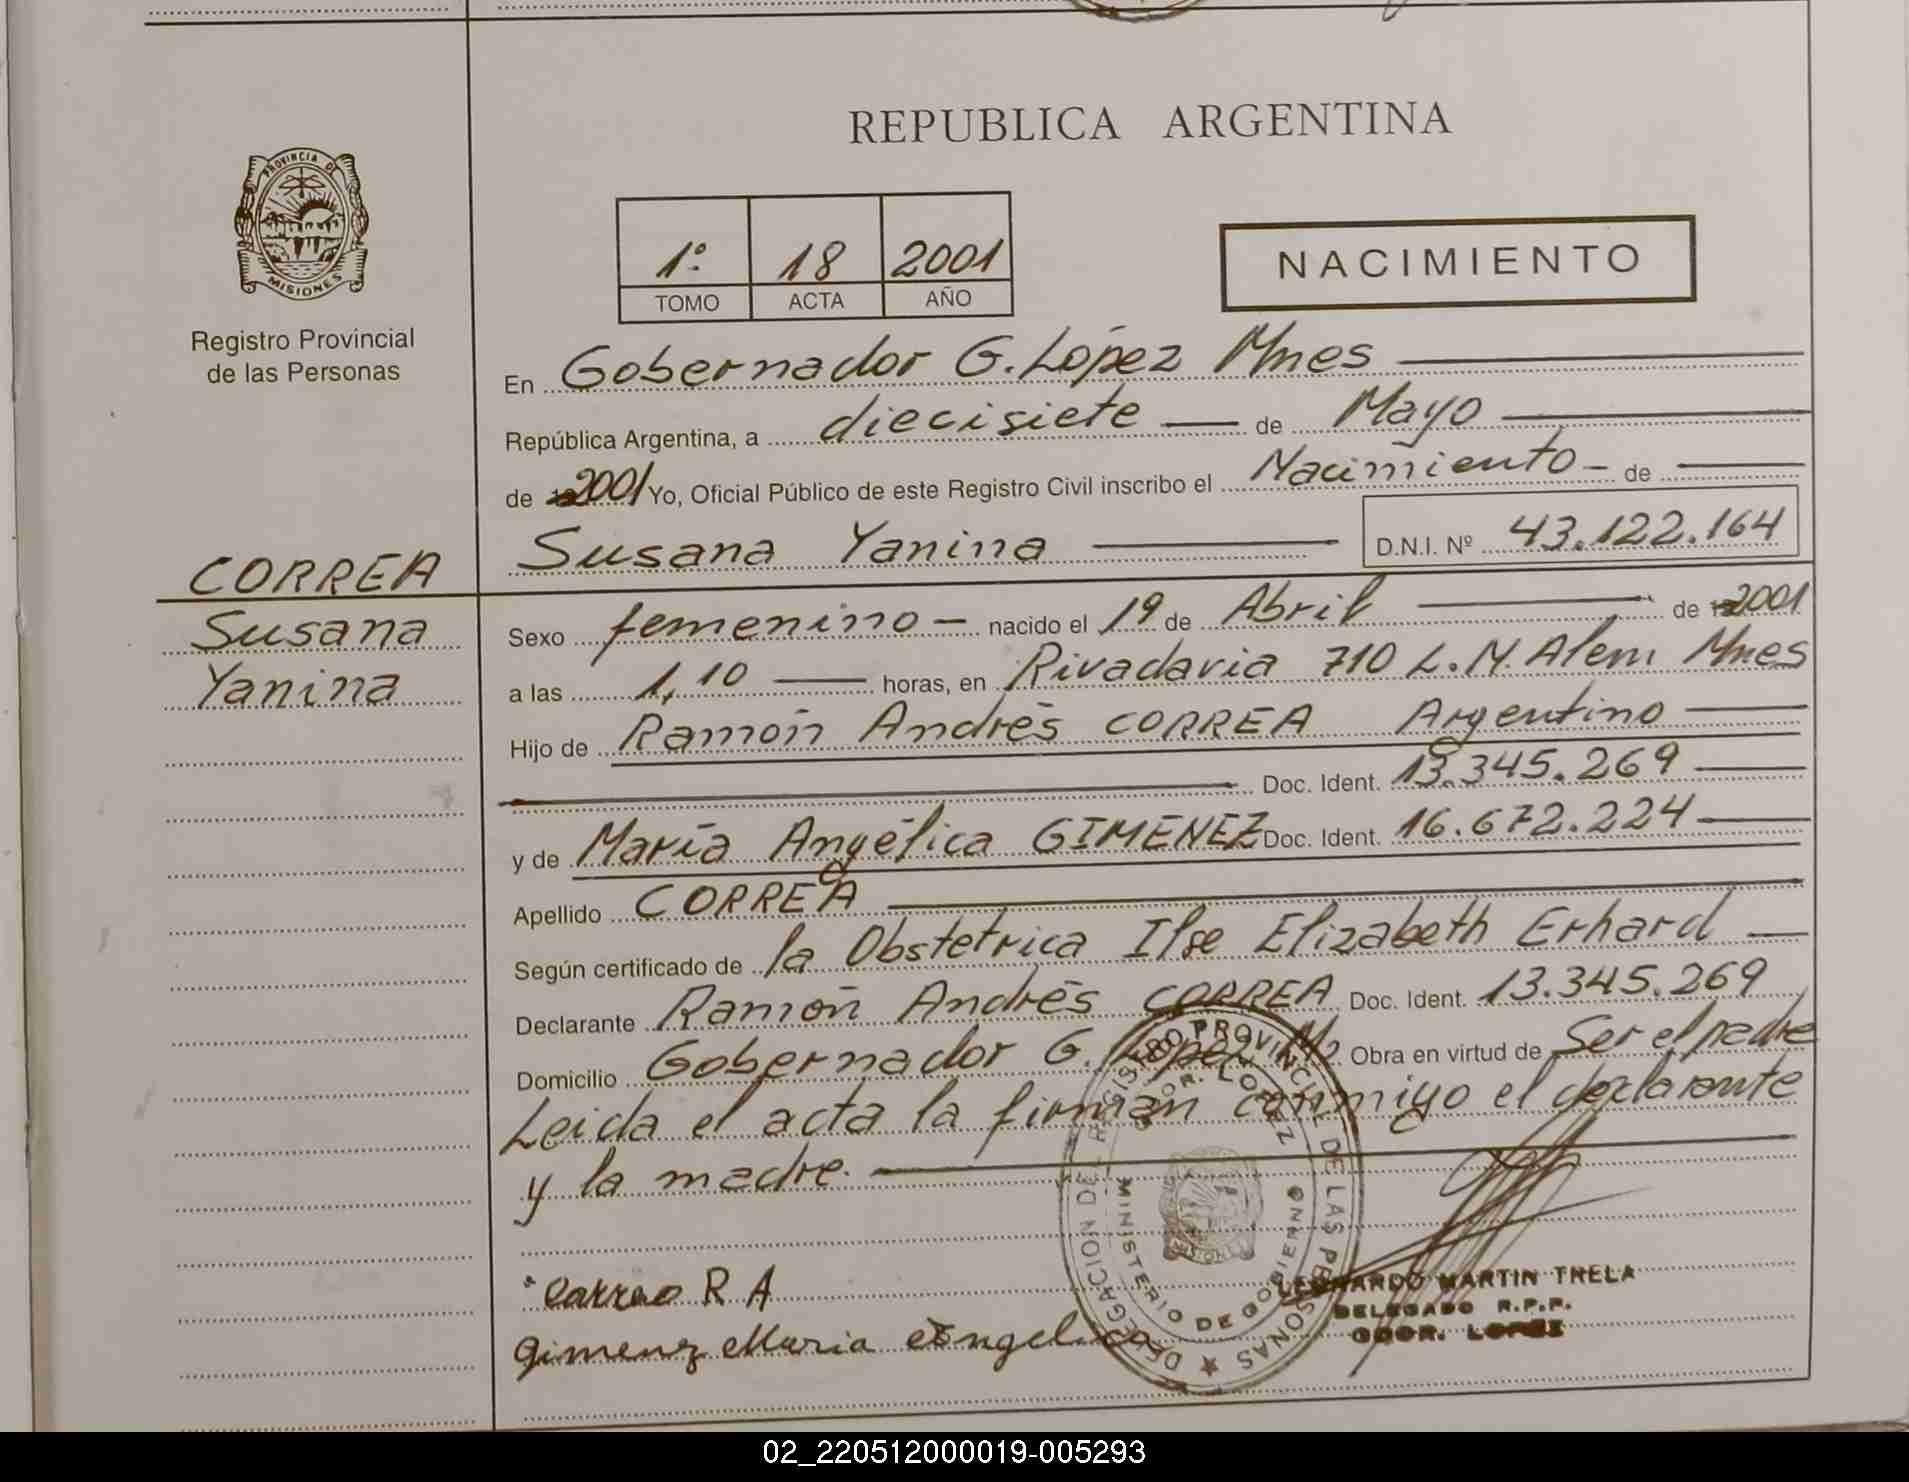 REPUBLICA ARGENTINA
PROVINCIA DE
MISIONES
Registro Provincial
de las Personas
1º 18 2001
TOMO ACTA AÑO
NACIMIENTO
En Gobernador G. López Mnes
República Argentina, a diecisiete de Mayo
de 2001 Yo, Oficial Público de este Registro Civil inscribo el Nacimiento - de
Susana Yanina D.N.I. Nº 43.122.164
CORREA
Susana
Yanina
Sexo femenino - nacido el 19 de Abril de 2001
a las 1,10 horas, en Rivadavia 710 L.N. Alem Mnes
Hijo de Ramón Andrés CORREA Argentino
Doc. Ident. 13.345.269
y de María Angélica GIMENEZ Doc. Ident. 16.672.224
Apellido CORREA
Según certificado de la Obstetrica Ilse Elizabeth Erhard
Declarante Ramón Andrés CORREA Doc. Ident. 13.345.269
Domicilio Gobernador G. López Obra en virtud de Ser el padre
Leida el acta la firman conmigo el declarante
y la madre.
DELEGACION DE REGISTRO PROVINCIAL DE LAS PERSONAS
GDOR. LOPEZ
MINISTERIO DE GOBIERNO
MISIONES
Correa R A
Gimenez Maria Angelica
LEONARDO MARTIN TRELA
DELEGADO R.P.P.
GDOR. LOPEZ
02_220512000019-005293